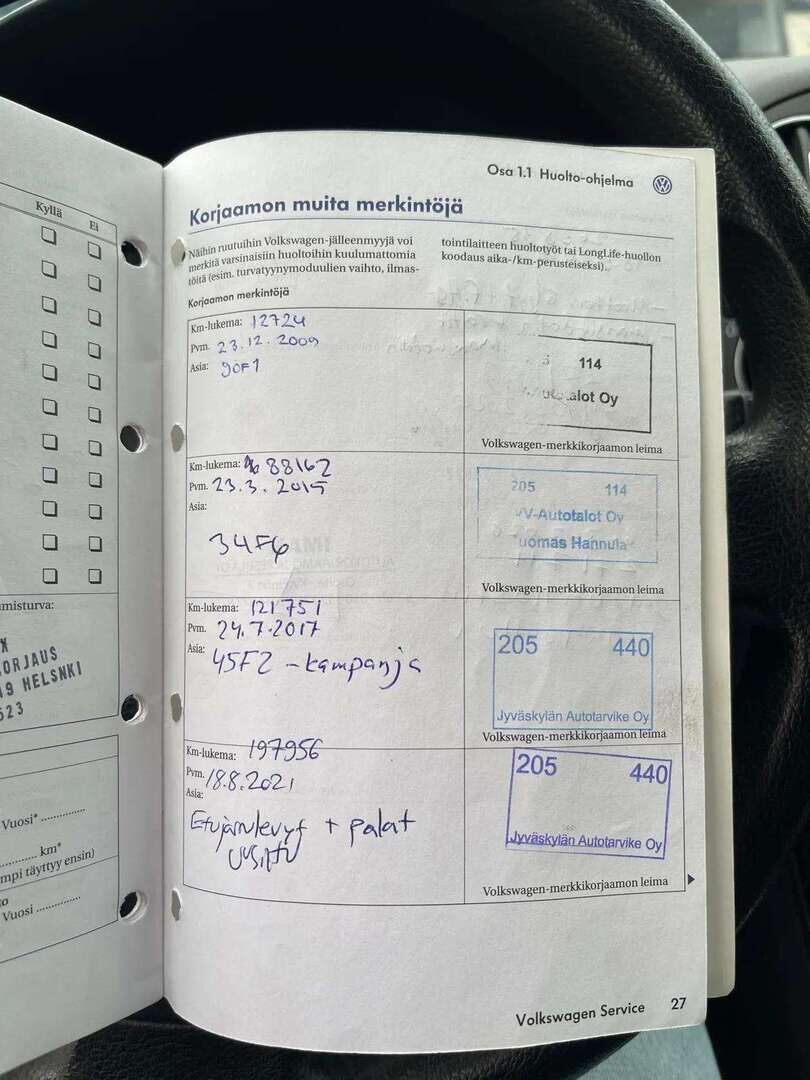 Kyllä
Ei
misturva:
X
ORJAUS
19 HELSNKI
523
Vuosi*
km*
mpi täyttyy ensin)
o
Vuosi
Osa 1.1 Huolto-ohjelma
Korjaamon muita merkintöjä
Näihin ruutuihin Volkswagen-jälleenmyyjä voi
merkitä varsinaisiin huoltoihin kuulumattomia
töitä (esim. turvatyynymoduulien vaihto, ilmas-
tointilaitteen huoltotyöt tai LongLife-huollon
koodaus aika-/km-perusteiseksi).
Korjaamon merkintöjä
Km-lukema: 12724
Pvm. 23.12.2009
Asia: 90F1
114
alot Oy
Volkswagen-merkkikorjaamon leima
Km-lukema: 88162
Pvm. 23.3.2015
Asia:
34F6
205 114
VV-Autotalot Oy
uomas Hannula
Volkswagen-merkkikorjaamon leima
Km-lukema: 121751
Pvm. 24.7.2017
Asia: 45F2 - kampanja
205 440
Jyväskylän Autotarvike Oy
Volkswagen-merkkikorjaamon leima
Km-lukema: 197956
Pvm. 18.8.2021
Asia:
Etujarrulevyt + palat
uusittu
205 440
Jyväskylän Autotarvike Oy
Volkswagen-merkkikorjaamon leima
Volkswagen Service 27